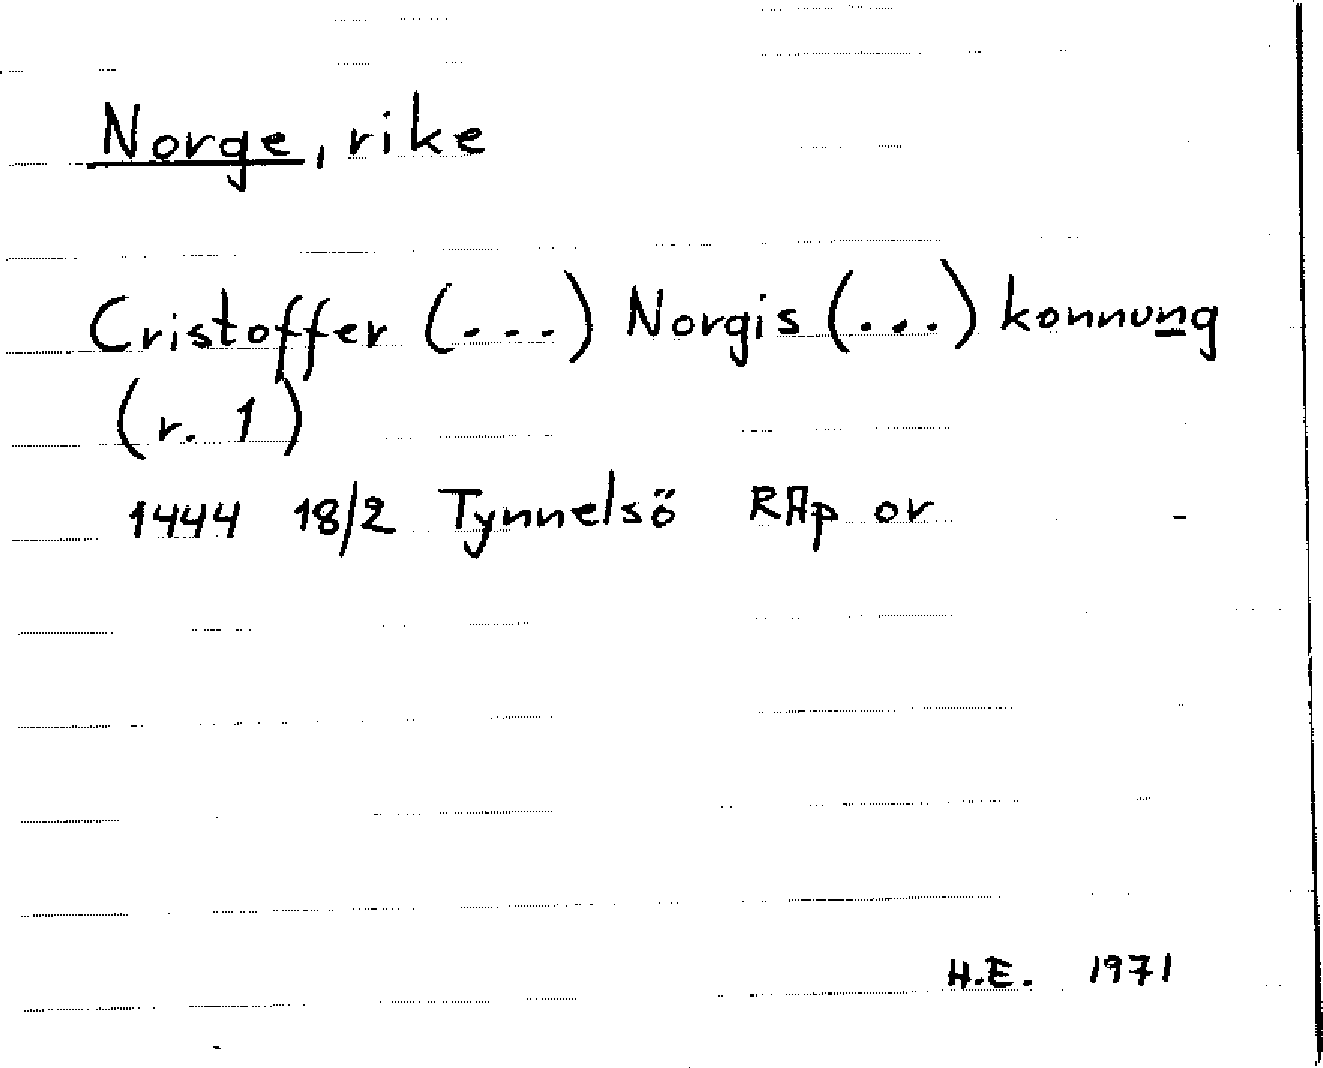 Norge, rike
Cristoffer (---) Norgis (...) konnung
(r. 1)
1444 18/2 Tynnelsö RAp or
H.E. 1971